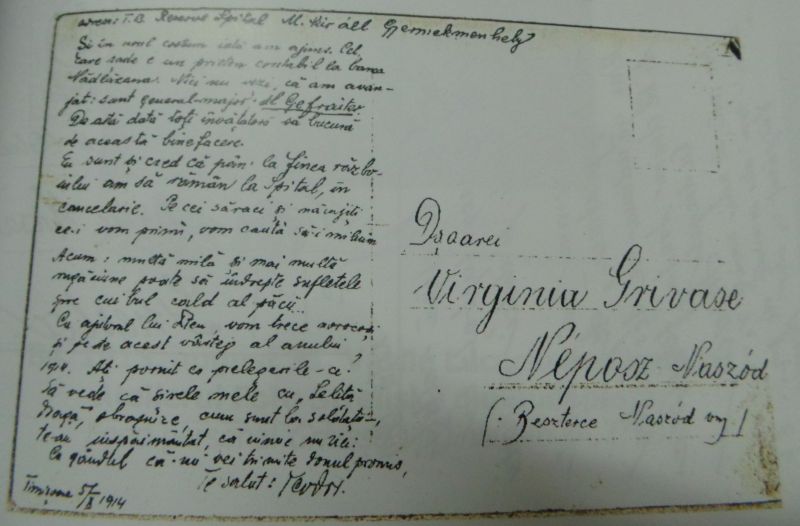 adresa: T.B. Reserve Spital M. Kir áll Gyermekmenhely
Și în noul costum iată am ajuns. Cel,
care șade e un prieten contabil la banca
Nădlăcana. Nici nu vezi, că am avan-
jat: sunt general-major dl. Gefraiter
De astă dată toți învățătorii să bucură
de această binefacere.
Eu sunt și cred că pân' la finea războ-
iului am să rămân la Spital, în
cancelarie. Pe cei săraci și năcăjiți
ce-i vom primi, vom caută să-i
Acum: multă milă și mai multă
rugăciune poate să îndrepte sufletele
spre cuibul cald al păcii...
Cu ajutorul lui Dzeu, vom trece norocoși
și pe de acest vârtej al anului
1914. Ați pornit cu prelegerile-ce.
Să vede că șirele mele cu, Lelită
Dragă, obraznice, cum sunt
te-au înspăimântat, că nimic nu zici.
Cu gândul că-mi vei trimite donul promis,
Te salut:
Timișoara 5/X 1914
Dșoarei
Virginia Grivase
Néposz Naszód
(Beszterce Naszód vm)